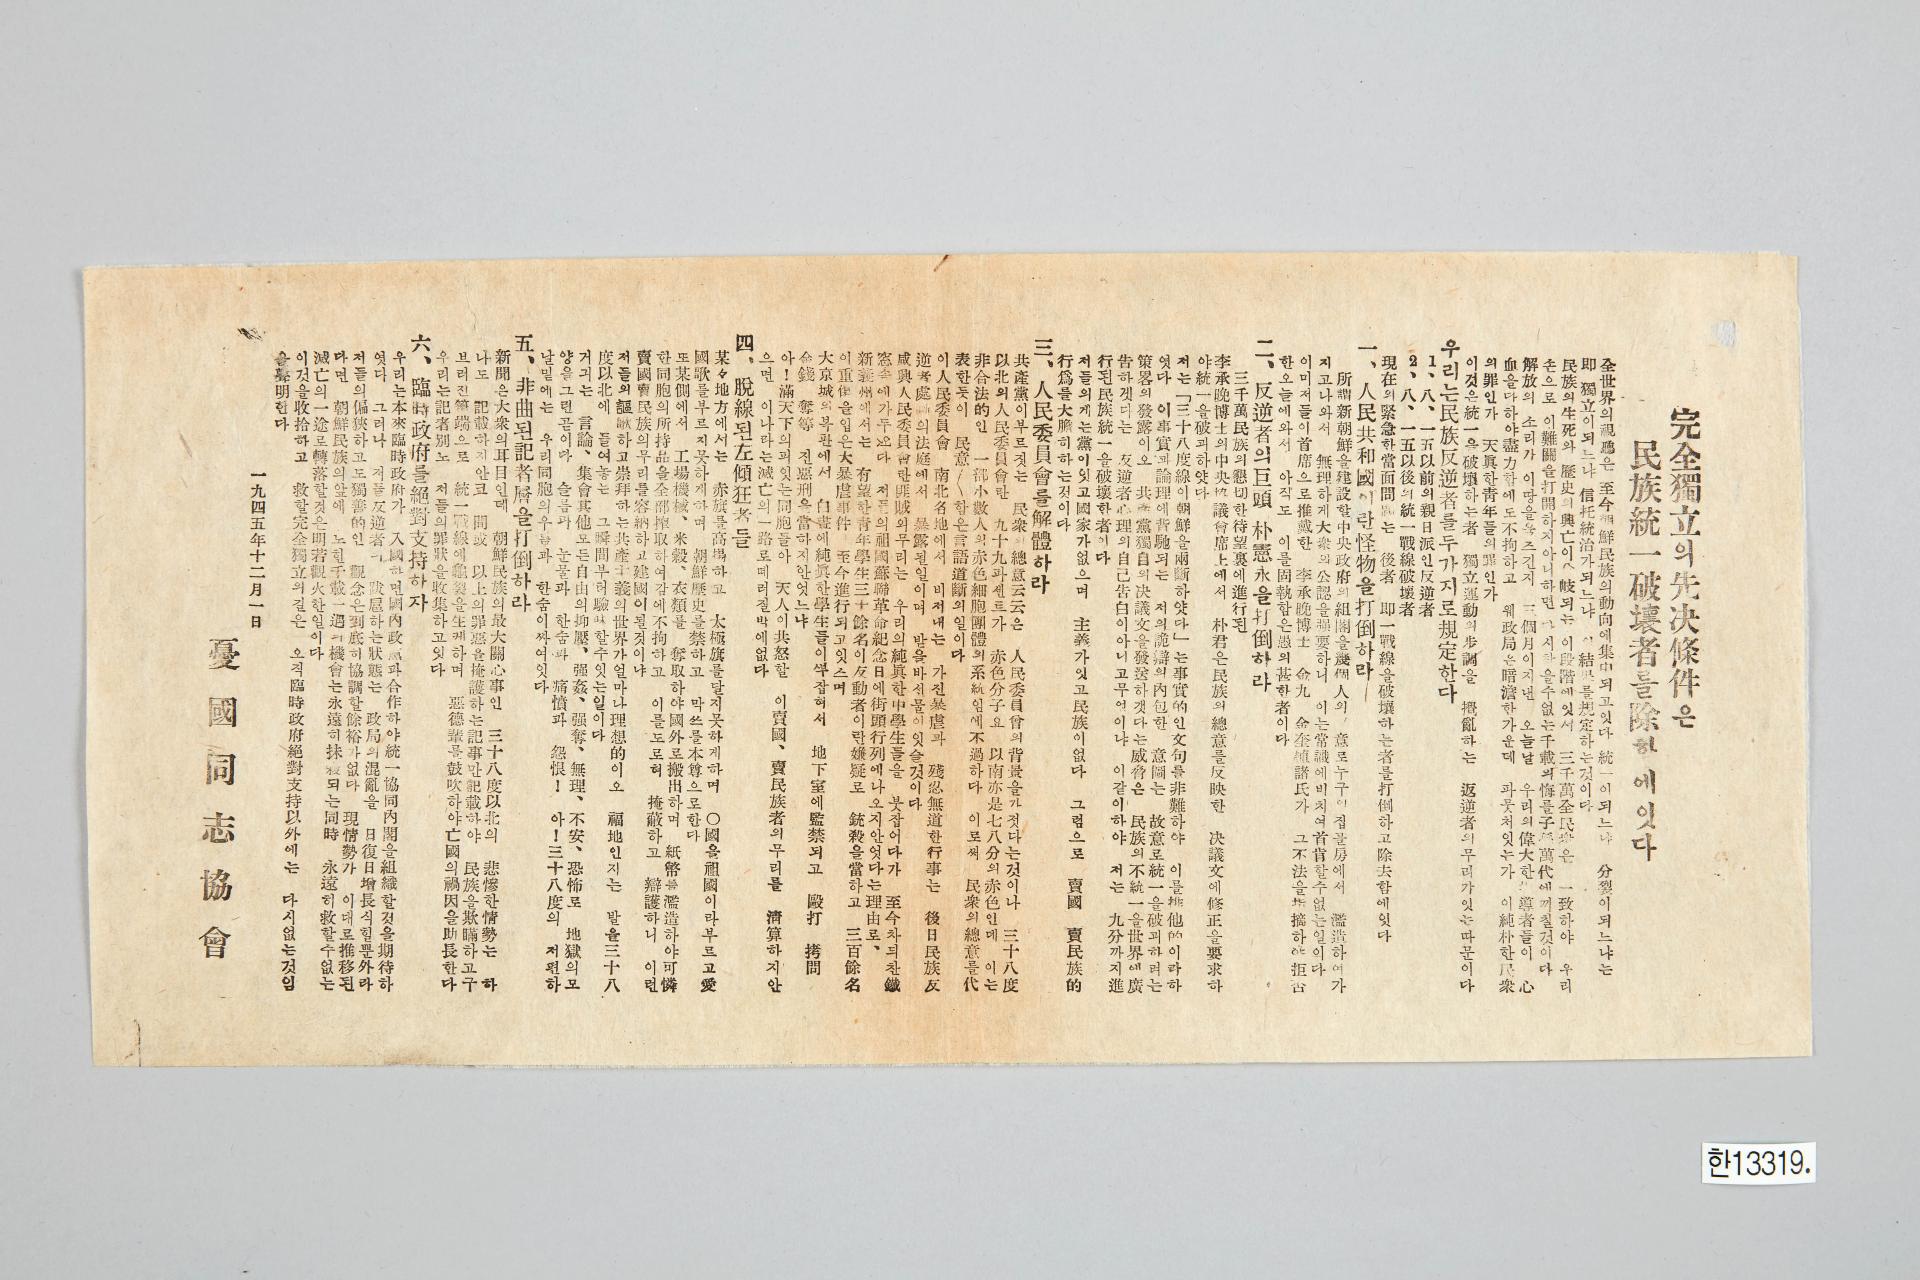 完全獨立의先決條件은
民族統一破壞者를除하에잇다
全世界의視聽은 至今朝鮮民族의動向에集中되고잇다 統一이되느냐 分裂이되느냐는
即 獨立이되느냐 信托統治가되느냐 이 結果를規定하는것이다
民族의生死와 歷史의興亡이 岐되는 이段階에잇서 三千萬全民衆은 一致하야 우리
손으로 이難關을打開하지아니하면 다시하을수없는千載의悔를子孫萬代에끼칠것이다
解放의 소리가 이땅을욱즈긴지 三個月이지낸 오늘날 우리의偉大한指導者들이 心
血을다하야盡力함에도不拘하고 웨政局은暗澹한가운데 파뭇처잇는가 이純朴한民衆
의罪인가 天眞한靑年들의罪인가
이것은統一을破壞하는者 獨立運動의步調을 攪亂하는 返逆者의무리가잇는따문이다
우리는民族反逆者를두가지로規定한다
1、八、一五以前의親日派인反逆者
2、八、一五以後의統一戰線破壞者
現在의緊急한當面問題는 後者 即一戰線을破壞하는者를打倒하고除去함에잇다
一、人民共和國이란怪物을打倒하라
所謂新朝鮮을建設할中央政府의組閣을幾個人의 意로누구의집뿔房에서 濫造하여가
지고나와서 無理하게大衆의公認을强要하니 이는常識에비처여首肯할수없는일이다
이미저들이首席으로推戴한 李承晩博士 金九 金奎植諸氏가 그不法을指摘하야拒否
한오늘에와서 아직도 이를固執함은愚의甚한者이다
二、反逆者의巨頭 朴憲永을打倒하라
三千萬民族의懇切한待望裏에進行된
李承晩博士의中央協議會席上에서 朴君은民族의總意를反映한 決議文에修正을要求하
야統一을破괴하얏다
저는「三十八度線이朝鮮을兩斷하얏다」는事實的인文句를非難하야 이를排他的이라하
엿다 이事實과論理에背馳되는 저의詭辯의內包한 意圖는 故意로統一을破괴하려는
策畧의發露이오 共產黨獨自의決議文을發送하겟다는威脅은 民族의不統一을世界에廣
告하겟다는 反逆者心理의自己告白이아니고무엇이냐 이같이하야 저는 九分까지進
行된民族統一을破壞한者이다
저들의게는黨이잇고國家가없으며 主義가잇고民族이없다 그럼으로 賣國 賣民族的
行爲를大膽히하는것이다
三、人民委員會를解體하라
共產黨이부르짓는 民衆의總意云云은 人民委員會의背景을가젓다는것이나 三十八度
以北의人民委員會란 九十九파센트가 赤色分子요 以南亦是七八分의赤色인데 이는
非合法的인 一部小數人의赤色細胞團體의系統임에不過하다 이로써 民衆의總意를代
表한듯이 民意 함은言語道斷의일이다
이人民委員會 南北各地에서 비저내는 가진暴虐과 殘忍無道한行事는 後日民族反
逆者處斷의法庭에서 暴露될일이며 발을바선물이잇슬것이다
咸興人民委員會란匪賊의무리는 우리의純眞한中學生들을 붓잡어다가 至今차듸찬鐵
窓속에가두엇다 저들의祖國蘇聯革命紀念日에街頭行列에나오지안엇다는理由로、
新義州에서는 有望한靑年學生三十餘名이反動者이란嫌疑로 銃殺을當하고 三百餘名
이重傷을입은大暴虐事件 至今進行되고잇스며
大京城의복판에서 白晝에純眞한學生들이붓잡혀서 地下室에監禁되고 毆打 拷問
金錢 奪等 진惡刑을當하지안엇느냐
아!滿天下의피잇는同胞들아 天人이共怒할 이賣國、賣民族者의무리를 淸算하지안
으면 이나라는滅亡의一路로떠러질박에없다
四、脫線된左傾狂者들
某々地方에서는 赤旗를高揚하고 太極旗를달지못하게하며 〇國을祖國이라부르고愛
國歌를부르지못하게하며 朝鮮歷史를禁하고 막쓰를本尊으로한다
또某側에서 工場機械、米穀、衣類를 奪取하야國外로搬出하며 紙幣를濫造하야可憐
한同胞의所持品을全部搾取하여감에不拘하고 이를도로혀 掩蔽하고 辯護하니 이런
賣國賣民族의무리를容納하고建國이될것이냐
저들의謳歌하고崇拜하는共產主義의世界가얼마나理想的이오 福地인지는 발을三十八
度以北에 들여놓는 그瞬間부터驗 할수잇는일이다
거긔는 言論、集會其他모든自由의抑壓、强姦、强奪、無理、不安、恐怖로 地獄의모
양을그린곧이다 슬픔과 눈물과 한숨과 痛憤과 怨恨! 아!三十八度의 저편하
날밑에는 우리同胞의우름과 한숨이싸여잇다
五、歪曲된記者層을打倒하라
新聞은大衆의耳目인데 朝鮮民族의最大關心事인 三十八度以北의 悲慘한情勢는 하
나도 記載하지안코 間或 以上의罪惡을掩護하는記事만記載하야 民族을欺瞞하고구
브러진筆端으로 統一戰線에龜裂을生케하며 惡德輩를鼓吹하야亡國의禍因을助長한다
우리는記者別노 저들의罪狀을收集하고잇다
六、臨時政府를絕對支持하자
우리는本來臨時政府가 入國하면國內政黨과合作하야統一協同內閣을組織할것을期待하
엿다 그러나 저들反逆者의 跋扈하는狀態는 政局의混亂을 日復日增長식힐뿐外라
저들의偏狹하고도獨善的인 觀念은到底히協調할餘裕가없다 現情勢가 이대로推移된
다면 朝鮮民族의앞에 노힌千載一遇의機會는永遠히抹殺되는同時 永遠히救할수없는
滅亡의一途로轉落할것은明若觀火한일이다
이것을收拾하고 救할完全獨立의길은 오직臨時政府絕對支持以外에는 다시없는것임
을聲明한다
一九四五年十二月一日
憂國同志協會
한13319.